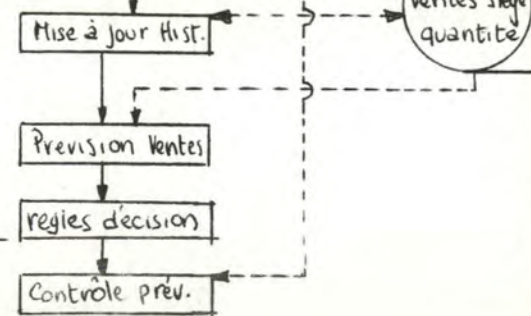 Mise à jour Hist.
ventes siège
quantité
Prevision Ventes
regles d'ecision
Contrôle prév.